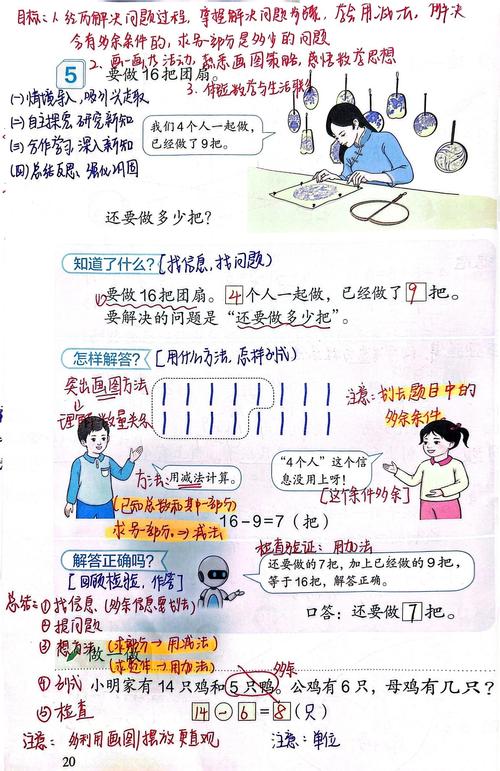 目标:1、经历解决问题过程, 掌握解决问题步骤, 会用减法, 解决
含有多余条件的, 求另一部分是多少的问题
2. 画一画等活动, 熟悉画图策略, 感悟数学思想
3. 体验数学与生活联系
5 要做16把团扇。
(一)情境导入, 吸引兴趣
(二)自主探究 研究新知
(三)合作学习, 深入新知
(四)总结反思、强化巩固
我们4个人一起做,
已经做了9把。
还要做多少把?
知道了什么? [找信息, 找问题]
要做16把团扇。4个人一起做, 已经做了9把。
要解决的问题是“还要做多少把”。
怎样解答? [用什么方法, 怎样列式]
突出画图方法
理解数量关系
注意: 划去题目中的
多余条件。
方法: 用减法计算。
“4个人”这个信
息没用上呀!
[这个条件多余]
(已知总数和其中一部分
求另一部分 ⇒ 减法
16-9=7(把)
解答正确吗?
[回顾检验, 作答]
检查验证: 用加法
还要做的7把, 加上已经做的9把,
等于16把, 解答正确。
口答: 还要做7把。
总结: ① 找信息、(多余信息要划去)
② 提问题
③ 想方法 (求部分 → 用减法)
(求整体 → 用加法)
做一做
多余
④ 列式 小明家有14只鸡和5只鸭。公鸡有6只, 母鸡有几只?
⑤ 检查 14-6=8(只)
注意: 多利用画图/摆放更直观 注意: 单位
20